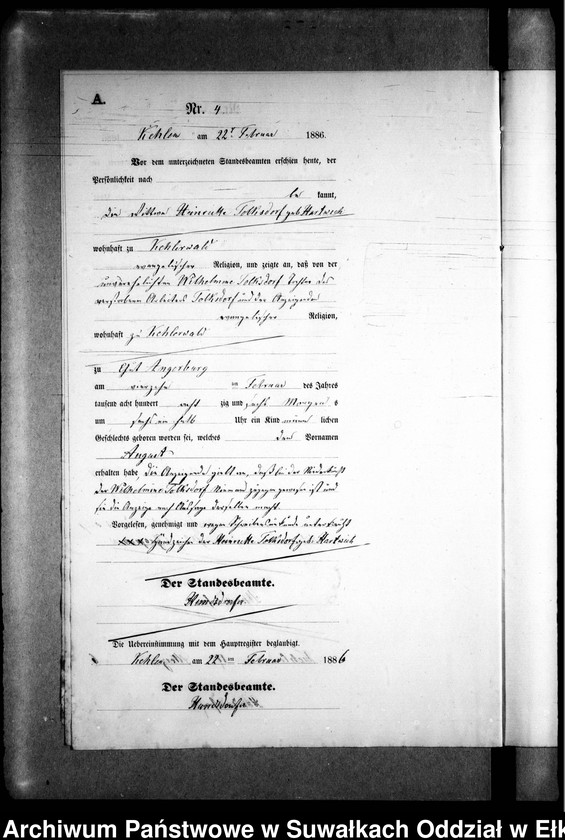 A.
Nr. 4
Kehlen am 22t Februar 1886.
Vor dem unterzeichneten Standesbeamten erschien heute, der
Persönlichkeit nach
be kannt,
die Wittwe Heinriette Tolksdorf geb. Hartwich
wohnhaft zu Kehlerwald
evangelischer Religion, und zeigte an, daß von der
unverehelichten Wilhelmine Tolksdorf Tochter des
verstorbenen Arbeiters Tolksdorf und der Anzeigende
evangelischer Religion,
wohnhaft zu Kehlerwald
zu Gut Angerburg
am vierzehn ten Februar des Jahres
tausend acht hundert acht zig und sechs Morgens
um sechs ein halb Uhr ein Kind männ lichen
Geschlechts geboren worden sei, welches den Vornamen
August
erhalten habe, die Anzeigende giebt an, daß bei der Niederkunft
der Wilhelmine Tolksdorf Niemand zugegen gewesen ist und
sie die Anzeige nach Aussage derselben macht.
Vorgelesen, genehmigt und wegen Schreibensunkunde unterkreuzt
xxx Handzeichen der Heinriette Tolksdorf geb. Hartwich
Der Standesbeamte.
Die Uebereinstimmung mit dem Hauptregister beglaubigt.
Kehlen am 22 ten Februar 1886
Der Standesbeamte.
Archiwum Państwowe w Suwałkach Oddział w Ełk